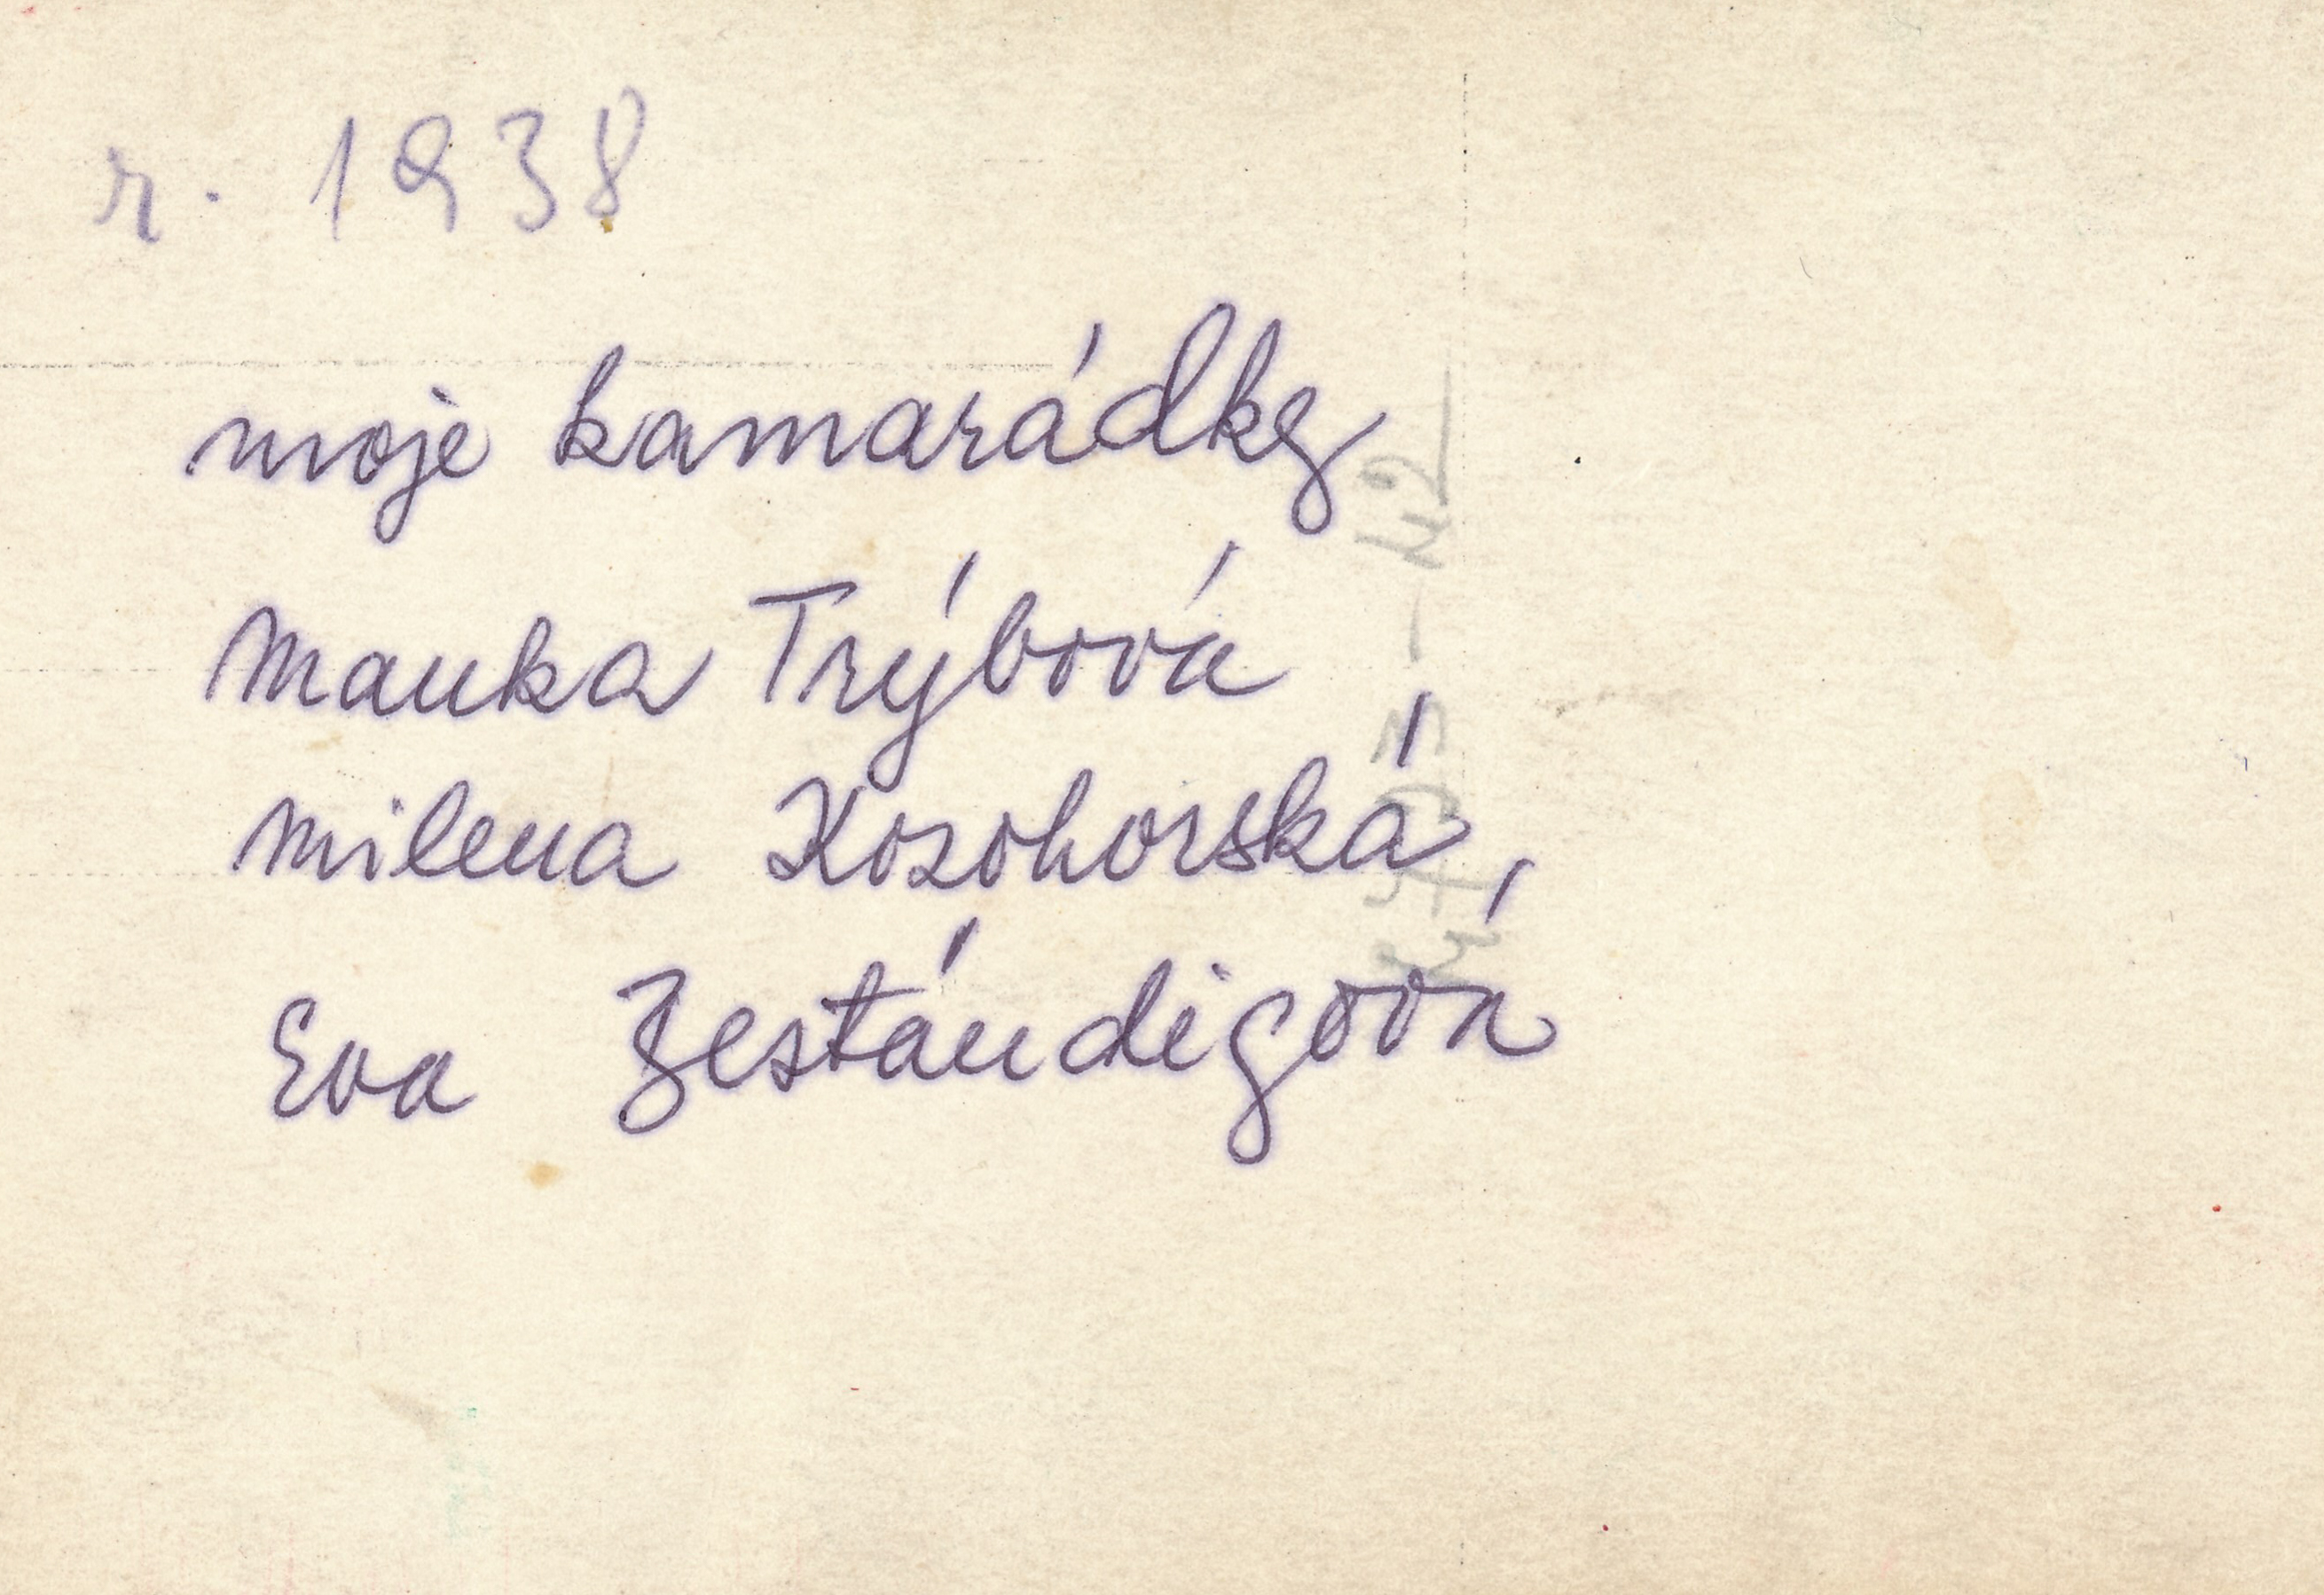 r. 1938
moje kamarádky
Manka Trýbová
Milena Kozohorská,
Eva Zestándigová